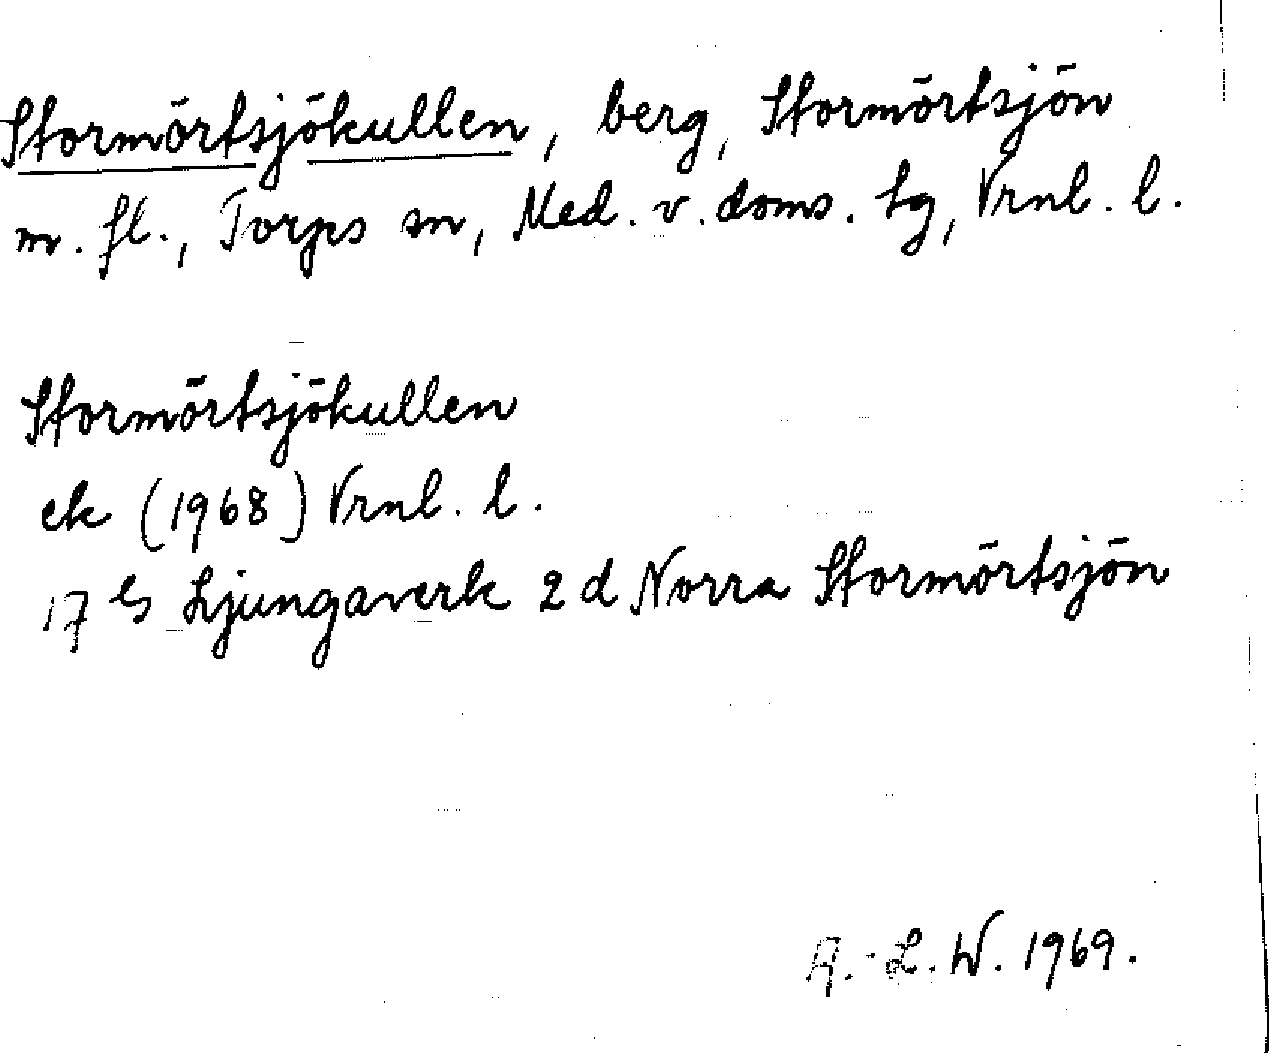 Stormörtsjökullen, berg, Stormörtsjön
m. fl., Torps sn, Med. v. doms. tg, Vrnl. l.
Stormörtsjökullen
ek (1968) Vrnl. l.
17 G Ljungaverk 2 d Norra Stormörtsjön
A.-L. W. 1969.